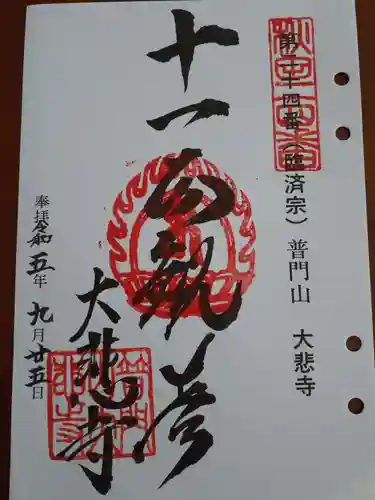 第二十四番(臨済宗) 普門山 大悲寺
十一面観音
大悲寺
奉拝 令和五年 九月廿五日